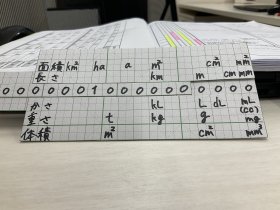 面積 km² ha a m² cm² mm²
長さ km m cm mm
0 0 0 0 0 1 0 0 0 0 0 0 0 0 0 0
かさ kL L dL mL
(cc)
重さ t kg g mg
体積 m³ cm³ mm³